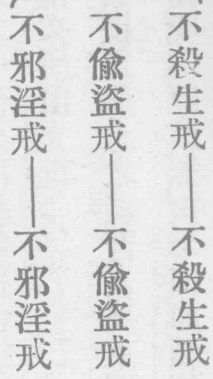 不殺生戒——不殺生戒
不偸盜戒——不偸盜戒
不邪淫戒——不邪淫戒